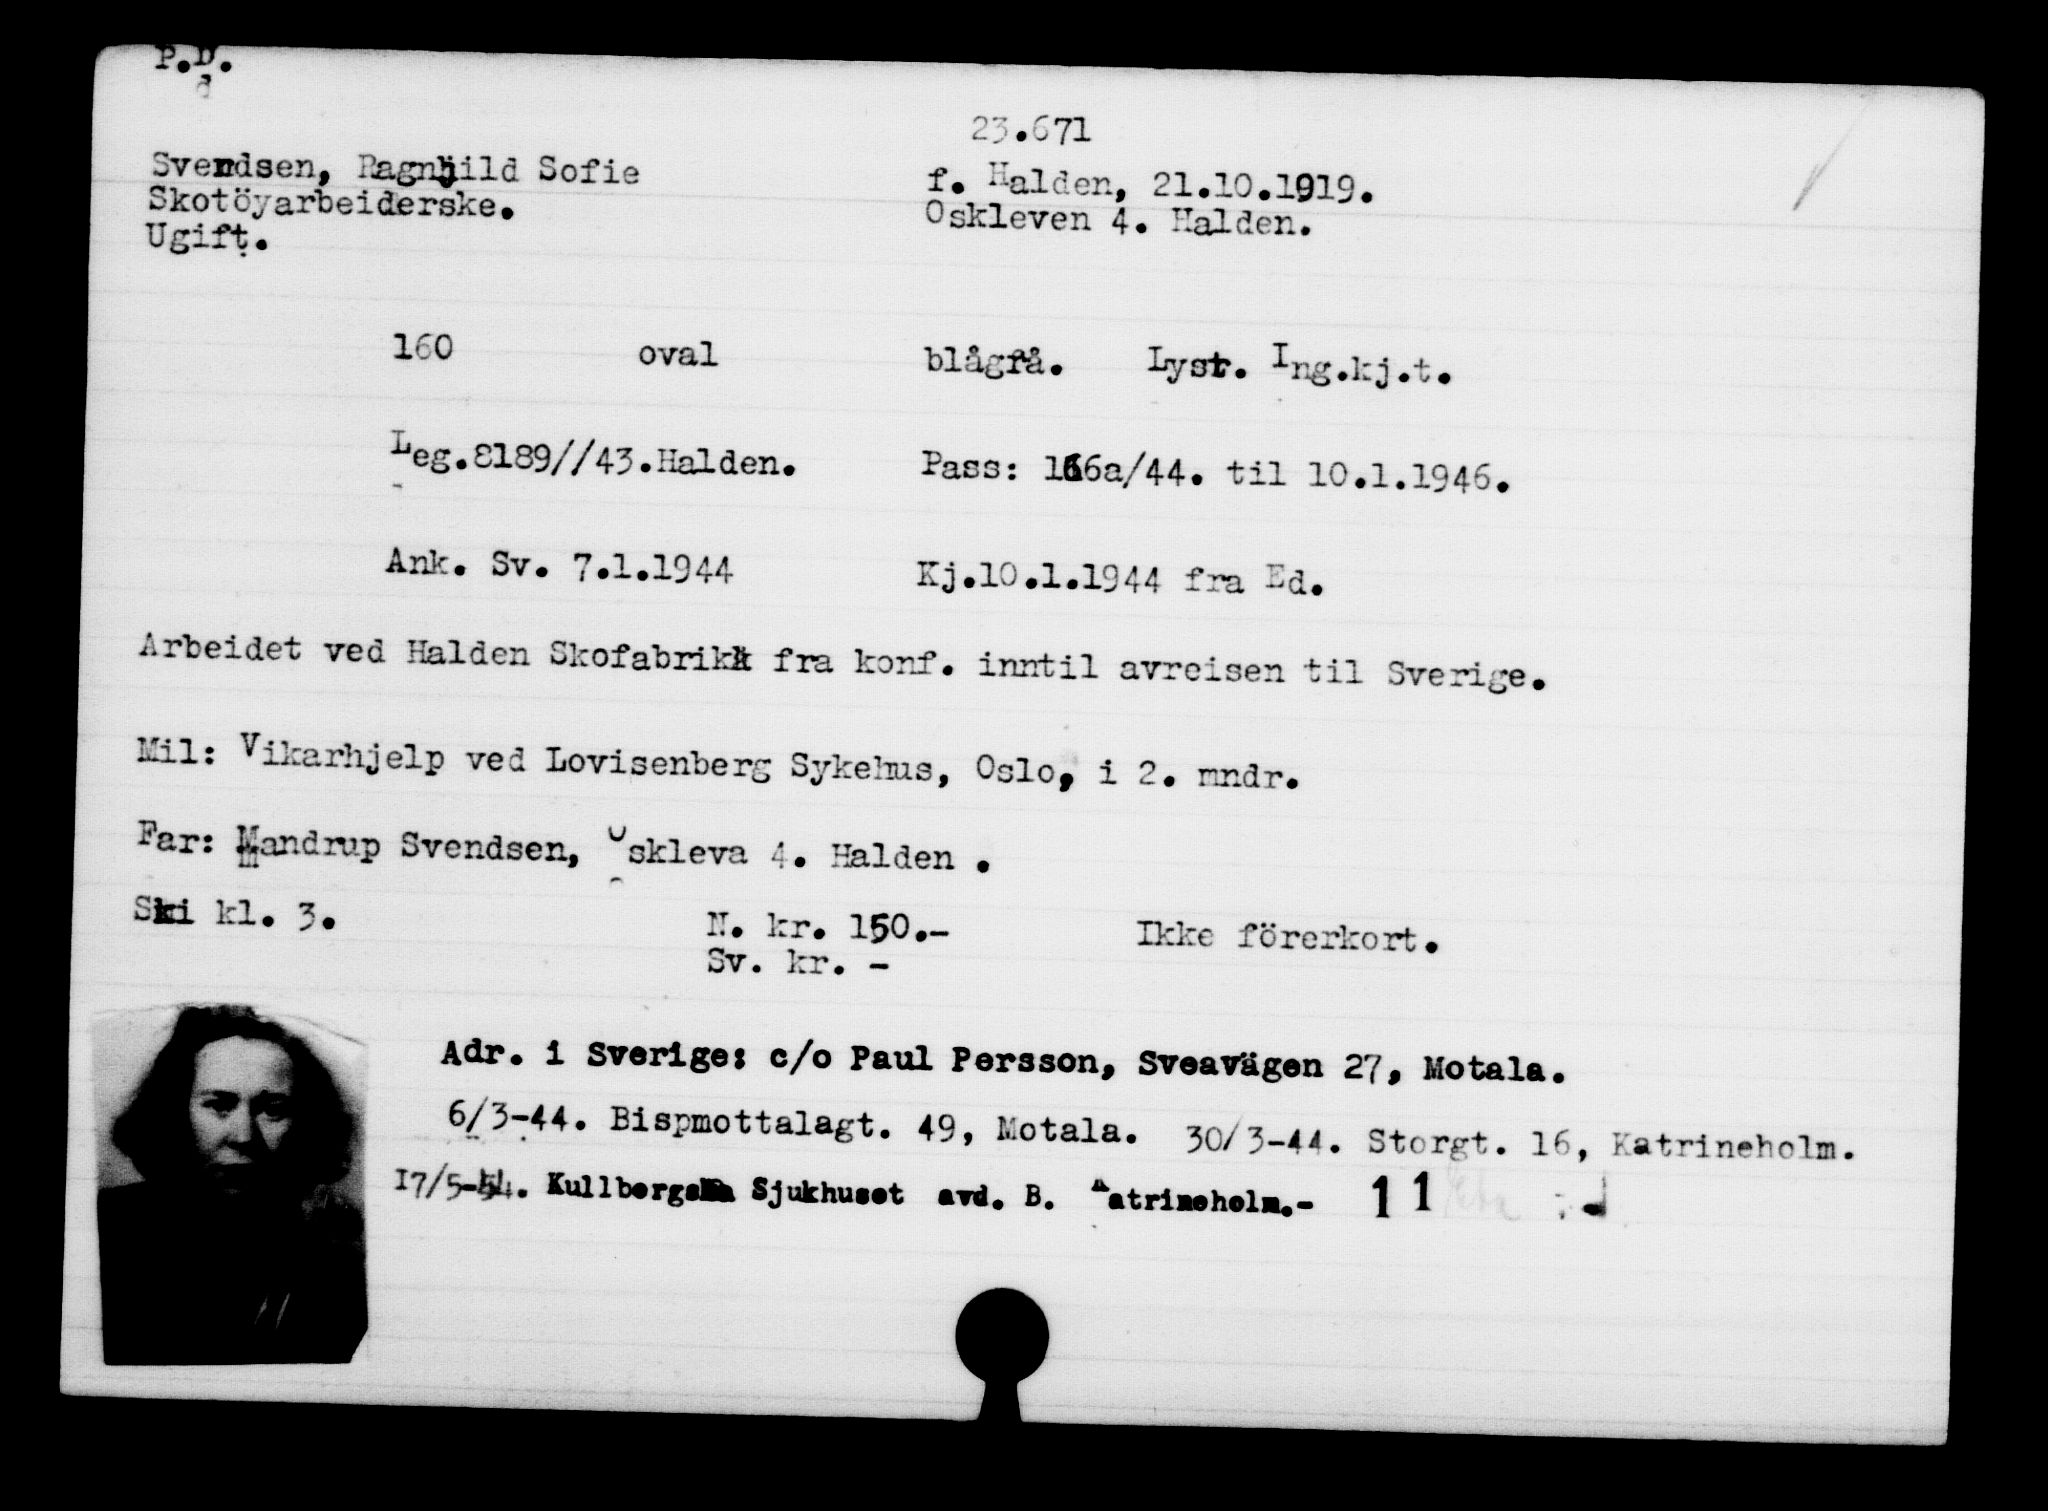 P.D.
d
23.671
Svendsen, Ragnhild Sofie f. Halden, 21.10.1919.
Skotöyarbeiderske. Oskleven 4. Halden.
Ugift.
160 oval blågrå. Lyst. Ing.kj.t.
Leg.8189//43.Halden. Pass: 166a/44. til 10.1.1946.
Ank. Sv. 7.1.1944 Kj.10.1.1944 fra Ed.
Arbeidet ved Halden Skofabrikk fra konf. inntil avreisen til Sverige.
Mil: Vikarhjelp ved Lovisenberg Sykehus, Oslo, i 2. mndr.
Far: Mandrup Svendsen, Oskleva 4. Halden .
Ski kl. 3. N. kr. 150.- Ikke förerkort.
Sv. kr. -
Adr. i Sverige: c/o Paul Persson, Sveavägen 27, Motala.
6/3-44. Bispmottalagt. 49, Motala. 30/3-44. Storgt. 16, Katrineholm.
17/5-44. Kullbergska Sjukhuset avd. B. Katrineholm.- 11